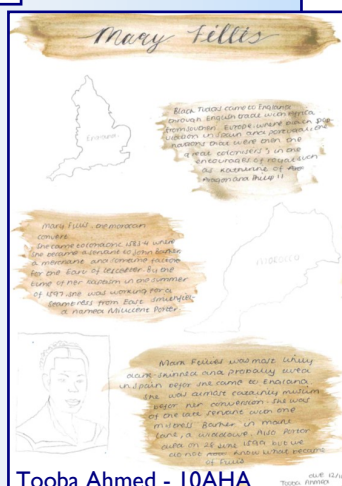 Mary Fillis
England
Black Tudors came to England
through English trade with Africa
from southern Europe where
in Spain and Portugal, the
nations that were then the
great colonisers, in the
entourages of royals such
as Katherine of
Aragon and Philip II
MOROCCO
Mary Fillis, the moroccan
convert.
She came to London c. 1583-4 where
she became a servant to John Barker
a merchant and sometime factor
for the Earl of Leicester. By the
time of her baptism in the summer
of 1597 she was working for a
seamstress from East Smithfield
named Millicent Porter
was most likely
dark skinned and probably lived
in Spain before she came to England
she was almost certainly muslim
before her conversion. She was
of the late servant with one
mistress Barker in
, a widdowe. Also Porter
on 28 June 1599 but we
do not know what became
of
Tooba Ahmed - 10AHA